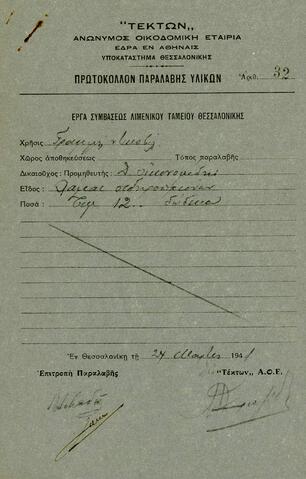 "ΤΕΚΤΩΝ„
ΑΝΩΝΥΜΟΣ ΟΙΚΟΔΟΜΙΚΗ ΕΤΑΙΡΙΑ
ΕΔΡΑ ΕΝ ΑΘΗΝΑΙΣ
ΥΠΟΚΑΤΑΣΤΗΜΑ ΘΕΣΣΑΛΟΝΙΚΗΣ
ΠΡΩΤΟΚΟΛΛΟΝ ΠΑΡΑΛΑΒΗΣ ΥΛΙΚΩΝ Ἀριθ. 32
ΕΡΓΑ ΣΥΜΒΑΣΕΩΣ ΛΙΜΕΝΙΚΟΥ ΤΑΜΕΙΟΥ ΘΕΣΣΑΛΟΝΙΚΗΣ
Χρῆσις
Χῶρος ἀποθηκεύσεως Τόπος παραλαβῆς
Δικαιοῦχος: Προμηθευτὴς: Οἰκονομίδης
Εἶδος:
Ποσά: Τεμ 12 δώδεκα
Ἐν Θεσσαλονίκῃ τῇ 24 194
Ἐπιτροπὴ Παραλαβῆς "Τέκτων„ Α.Ο.Ε.